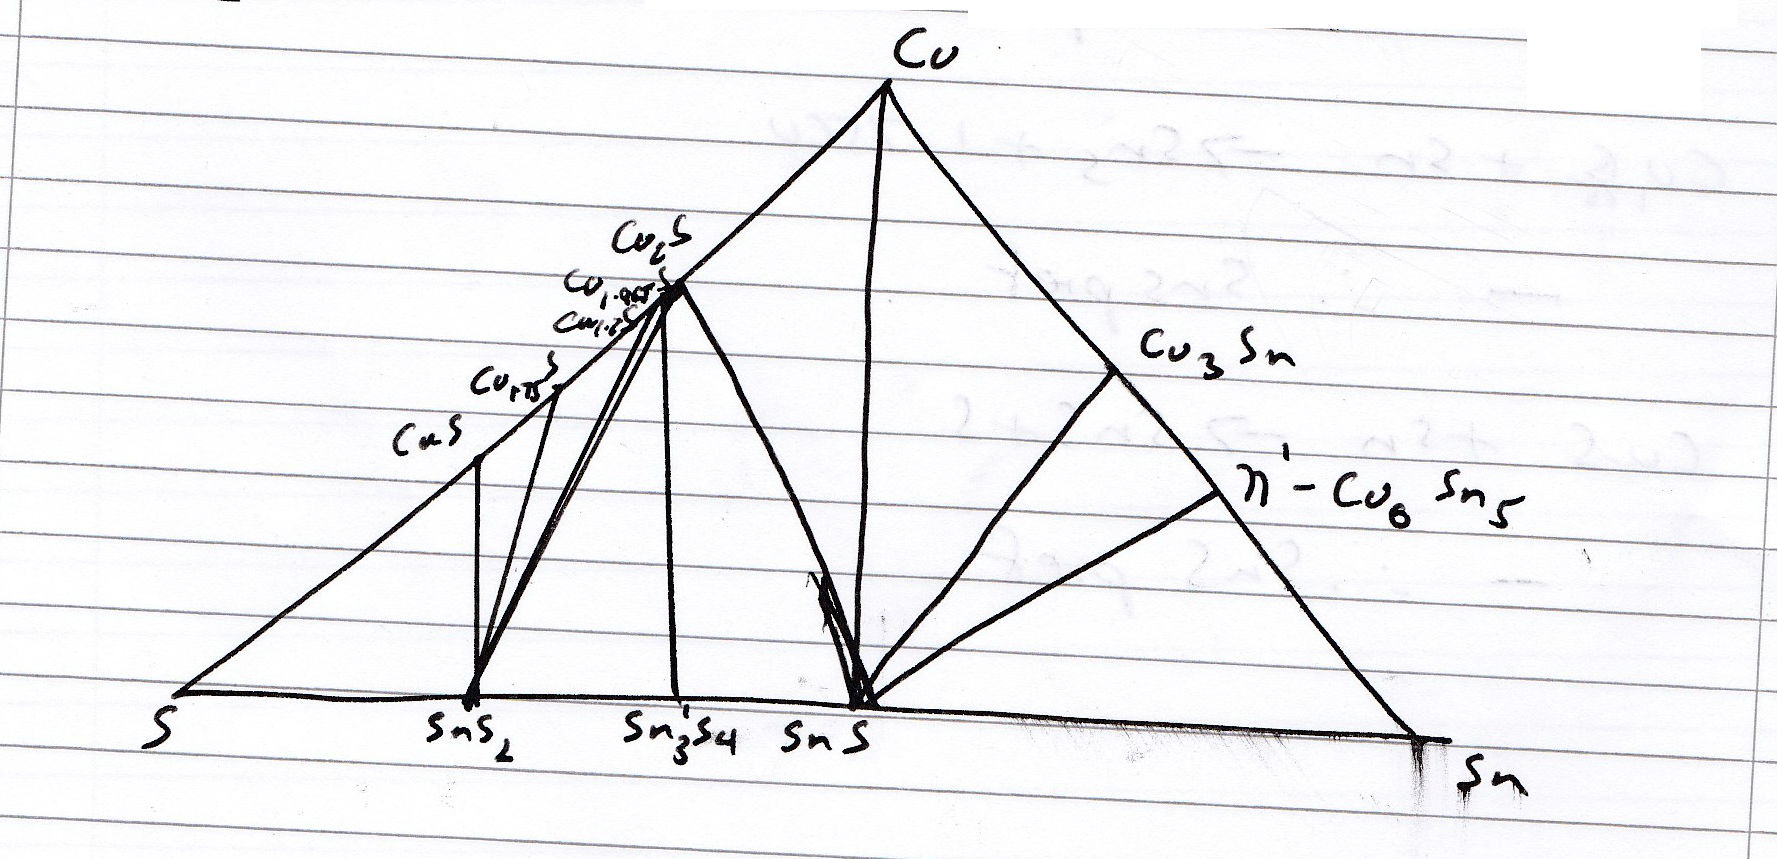 Cu
Cu₂S
Cu₁.₉₆₅S
Cu₁.₇₅S
CuS
Cu₃Sn
η' - Cu₆Sn₅
S
SnS₂
Sn₃S₄
SnS
Sn